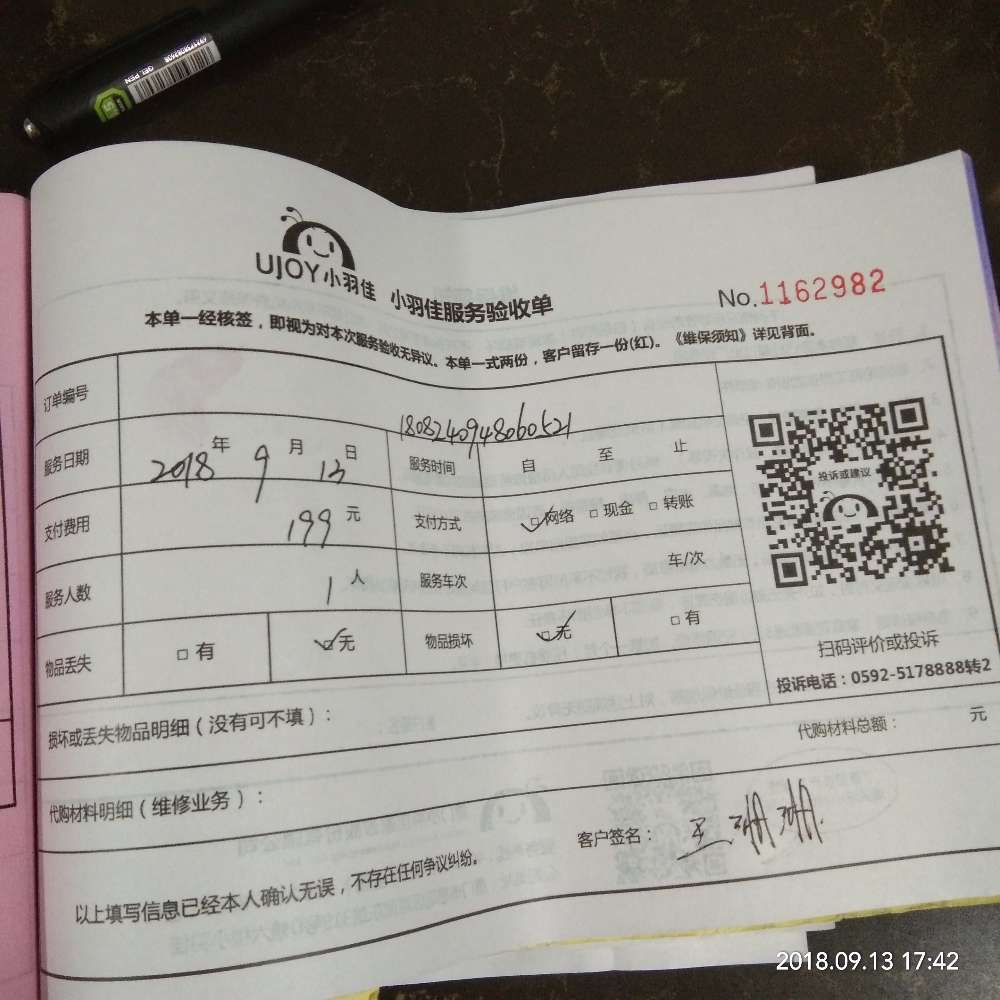 GEL PEN
UJOY小羽佳 小羽佳服务验收单
No.1162982
本单一经核签，即视为对本次服务验收无异议。本单一式两份，客户留存一份(红)。《维保须知》详见背面。
订单编号 1808240948060521
服务日期 2018年9月13日 服务时间 自 至 止
支付费用 199元 支付方式 网络 □现金 □转账
服务人数 1人 服务车次 车/次
物品丢失 □有 无 物品损坏 无 □有
投诉或建议
扫码评价或投诉
投诉电话：0592-5178888转2
损坏或丢失物品明细（没有可不填）：
代购材料明细（维修业务）： 代购材料总额： 元
以上填写信息已经本人确认无误，不存在任何争议纠纷。 客户签名： 王珊珊
2018.09.13 17:42